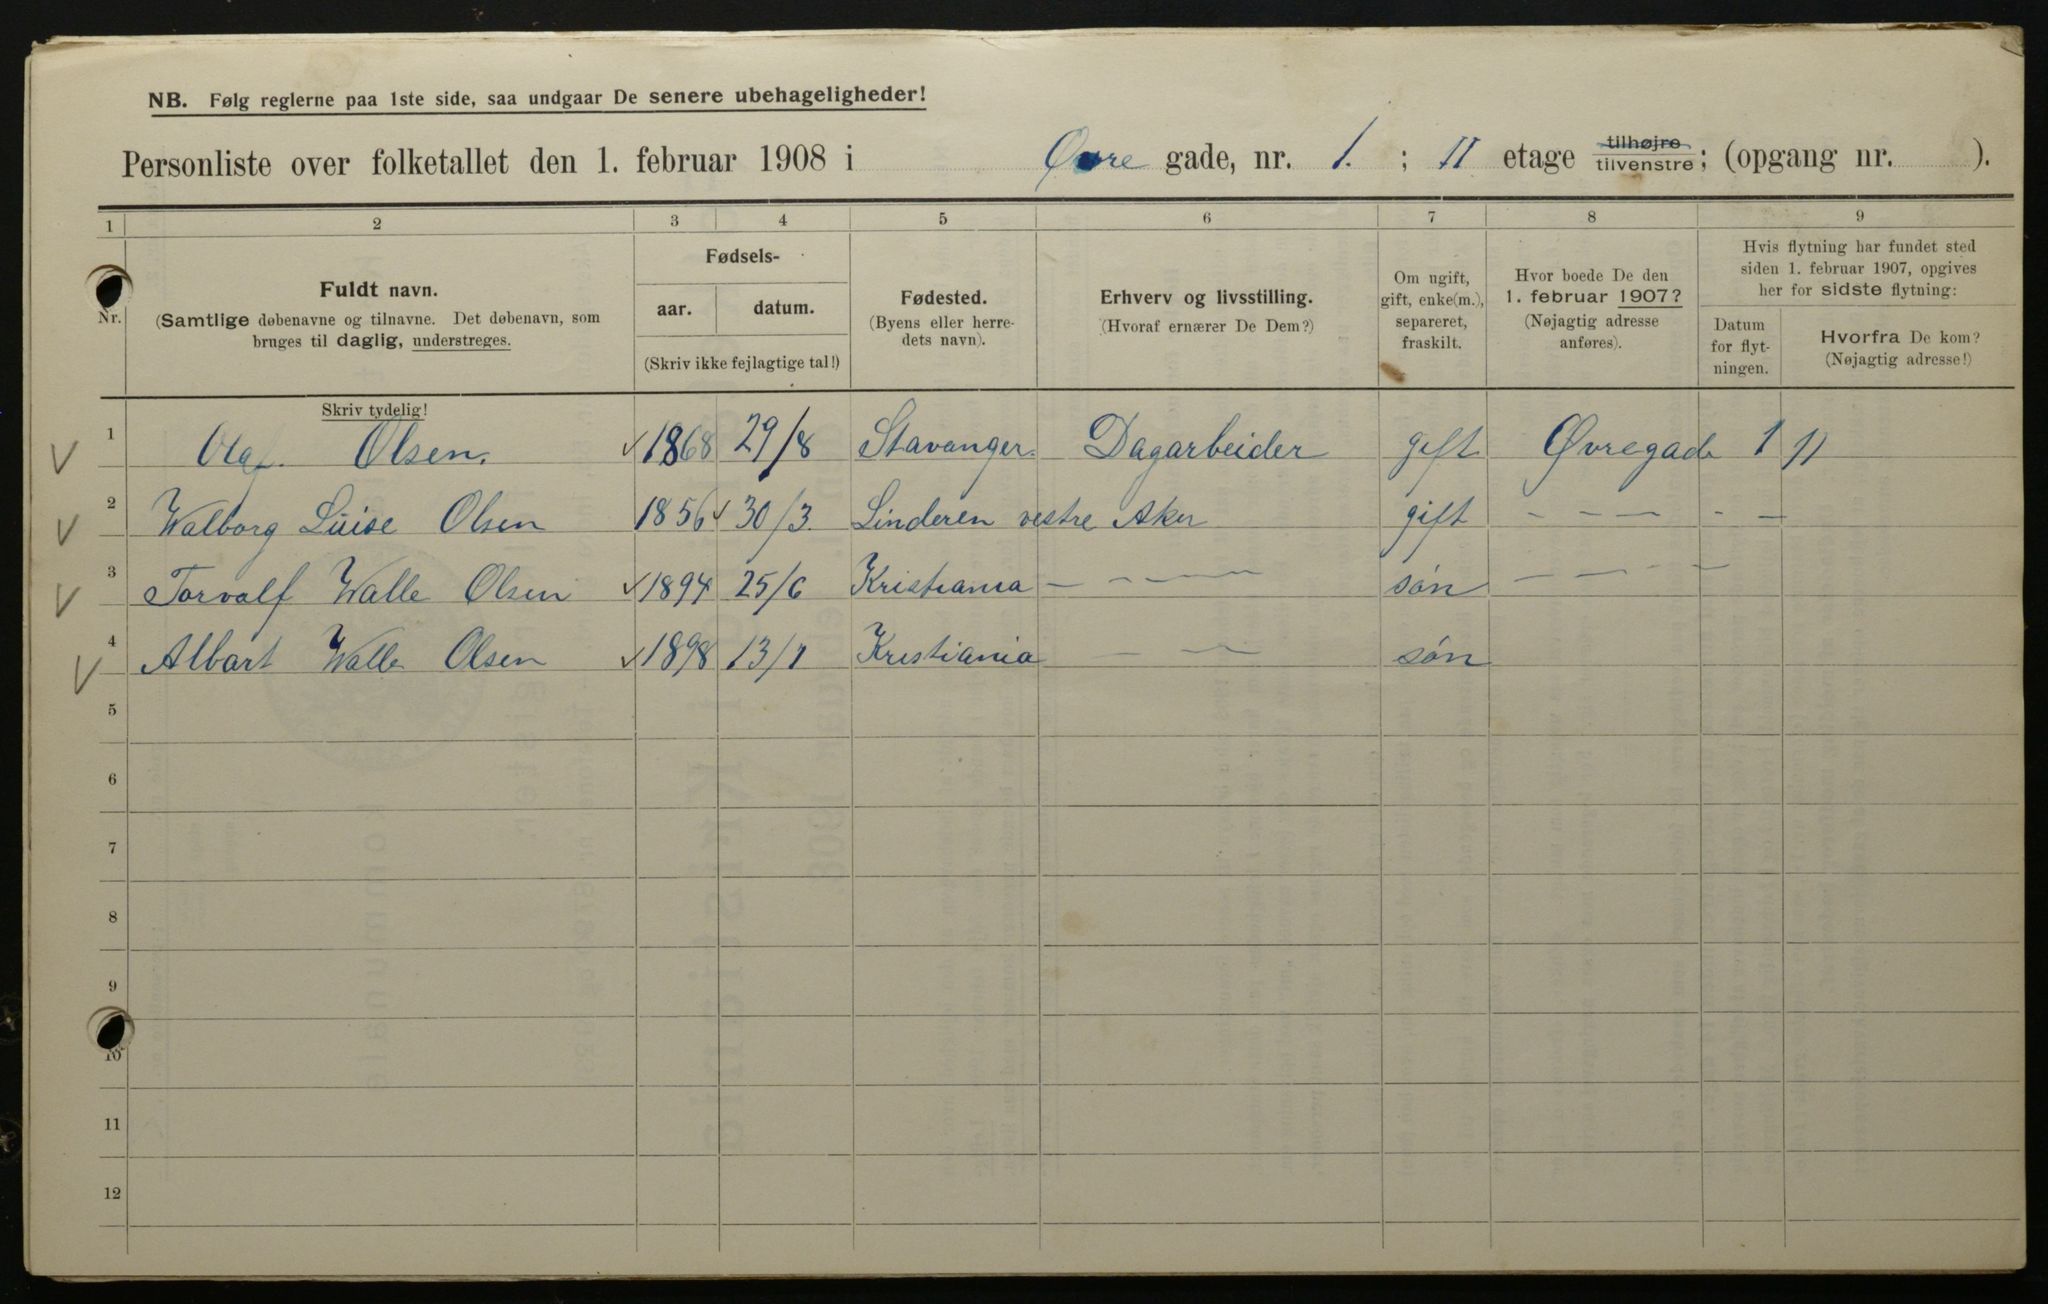 NB. Følg reglerne paa 1ste side, saa undgaar De senere ubehageligheder!
Personliste over folketallet den 1. februar 1908 i Øvre gade, nr. 1. ; II etage tilhøjre tilvenstre; (opgang nr. ).
1 2 3 4 5 6 7 8 9
Nr.
Fuldt navn.
(Samtlige døbenavne og tilnavne. Det døbenavn, som
bruges til daglig, understreges.
Skriv tydelig!
Fødsels-
aar. datum.
(Skriv ikke fejlagtige tal!)
Fødested.
(Byens eller herre-
dets navn).
Erhverv og livsstilling.
(Hvoraf ernærer De Dem?)
Om ngift,
gift, enke(m.),
separeret,
fraskilt.
Hvor boede De den
1. februar 1907?
(Nøjagtig adresse
anføres).
Hvis flytning har fundet sted
siden 1. februar 1907, opgives
her for sidste flytning:
Datum
for flyt-
ningen.
Hvorfra De kom?
(Nøjagtig adresse!)
1 Olaf. Olsen. 1868 29/8 Stavanger. Dagarbeider gift Øvregade 1 II
2 Walborg Luise Olsen 1856 30/3. Linderen vestre Aker gift — — — - —
3 Torvalf Walle Olsen 1894 25/6 Kristiania — - — — — søn — — — — —
4 Albart Walle Olsen 1898 13/1 Kristiania — — — søn
5
6
7
8
9
10
11
12